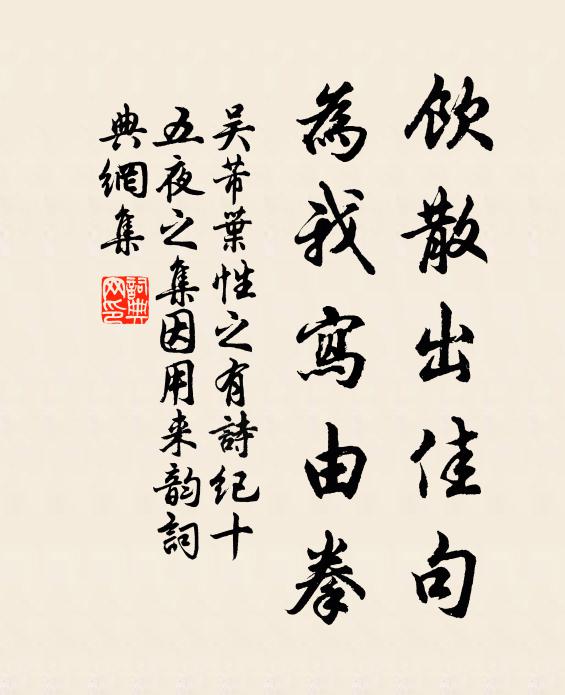 飲散出佳句
為我寫由拳
吳芾葉性之有詩紀十
五夜之集因用来韵詞
典網集
詞典
网印